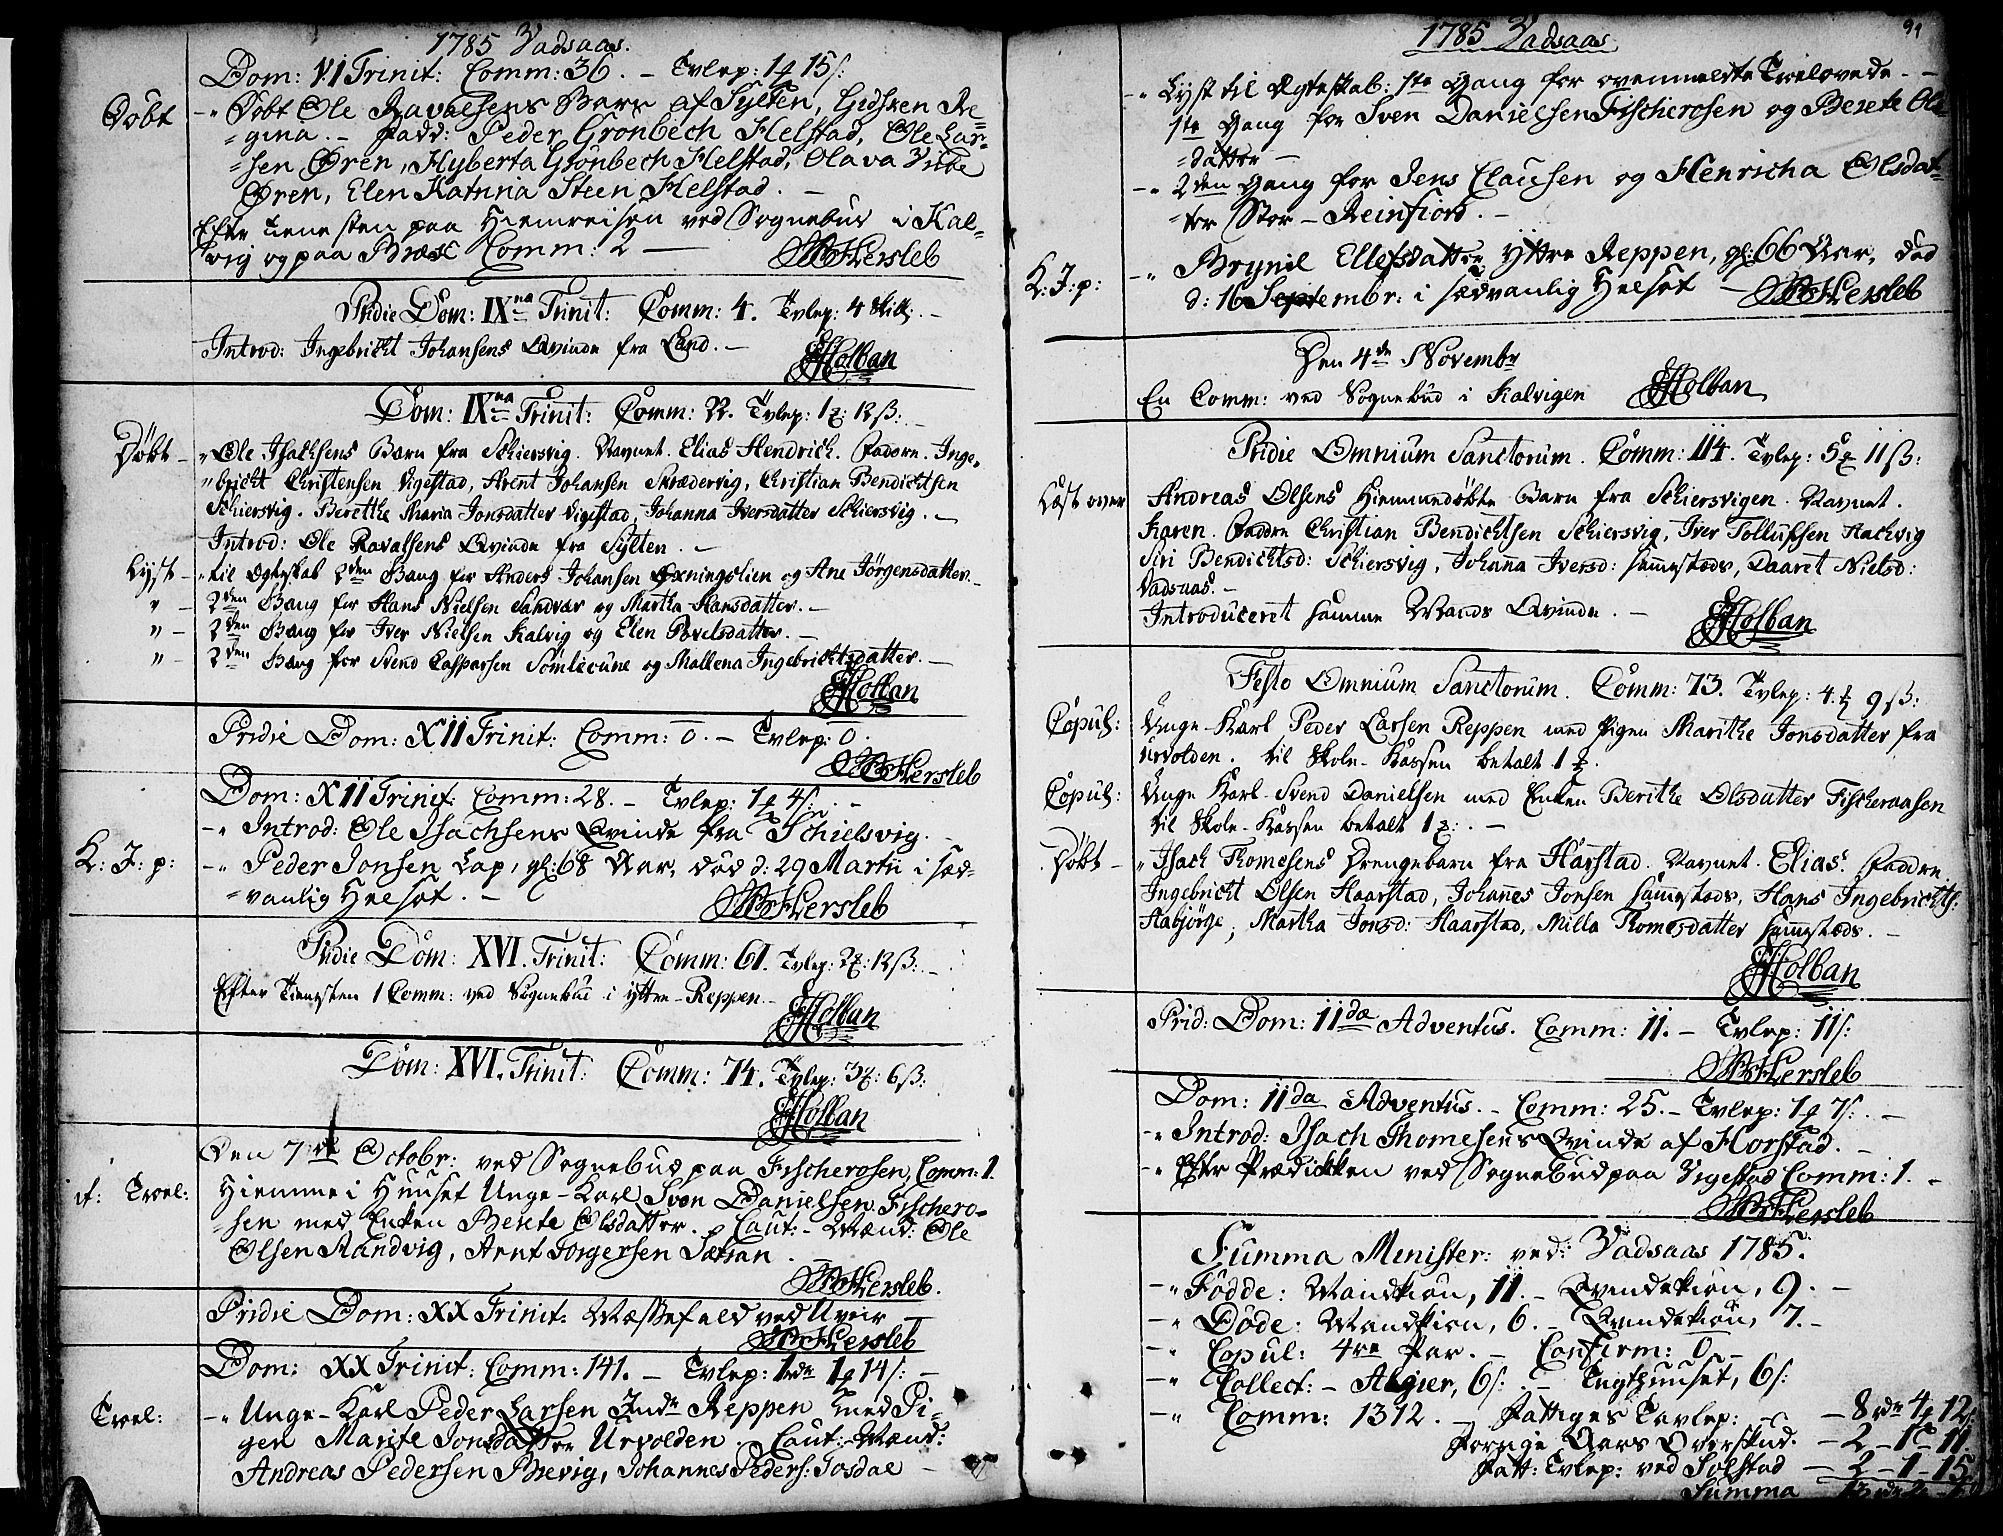 1785 Vadsaas.
Dom: VI Trinit: Comm: 36. – Tvlep: 1 ƒ 15 s:
Døbt -„ Døbt Ole Ravalsens Barn af Sylten, Gidsken Re=
=gina. – Fadd: Peder Grønbech Helstad, Ole Lar=
=sen Øren, Hyberta Grønbech Helstad, Olava Vibe
Øren, Elen Katrina Steen Helstad. –
Efter Tienesten paa Hiemreisen ved Sognebud i Kal=
vig og paa Bræk Comm: 2 — Hersleb
Pridie Dom: IXna Trinit: Comm: 4. Tvlep: 4 skill. –
Introd: Ingebricht Johansens Qvinde fra Lund. – Holban
Dom: IXna Trinit: Comm: 22. Tvlep: 1 ƒ: 12 ß:
Døbt – „ Ole Isachsens Barn fra Schiersvig. Navnet. Elias Hendrich. Faddre. Inge„
„bricht Christensen Vigestad, Arent Johansen Skrædervig, Christian Bendichtsen
Schiersvig. Berethe Maria Jonsdatter Vigestad, Johanna Iversdatter Schiersvig. –
Introd: Ole Ravalsens Qvinde fra Sylten. –
Lyst – „ til Egteskab 2den Gang for Anders Johansen Øxningslien og Ane Jørgensdatter. –
„ – 2den Gang for Hans Nielsen Sandvær og Martha Hansdatter. –
„ – 2den Gang for Iver Nielsen Kalvig og Elen Povelsdatter. –
„ – 2den Gang for Svend Caspersen Sømlieune og Mallena Ingebrichtsdatter. –
Holban
Pridie Dom: XII Trinit: Comm: 0. – Tvlep: 0.
Hersleb
Dom: XII Trinit: Comm: 28. – Tvlep: 1 ƒ 4 s: –
-„ Introd: Ole Isachsens Qvinde fra Schielsvig. –
L: J: p: -„ Peder Jonsen Lap, gl: 68 Aar, død d: 29 Martii i sæd=
=vanlig Helsot. – Hersleb
Pridie Dom: XVI. Trinit: Comm: 61. Tvlep: 2 ƒ: 12 ß: –
Efter Tienesten 1 Comm: ved Sognebud i yttre-Reppen. – Holban
Dom: XVI. Trinit: Comm: 74. Tvlep: 3 ƒ: 6 ß:
Holban
Den 7de Octobr: ved Sognebud paa Fischerosen, Comm: 1.
it: Troel: Hiemme i Huuset Unge-Karl Sven Danielsen Fischero=
=sen med Enken Berete Olsdatter. Caut: – Mænd: Ole
Olsen Aandvig, Arnt Torgersen Sætran.
Hersleb.
Pridie Dom: XX Trinit: Messefald ved Uveir –
Hersleb
Dom: XX Trinit: Comm: 141. – Tvlep: 1 rdr 1 ƒ 14 s: –
Troel: -„ Unge-Karl Peder Larsen Indr Reppen med Pi=
gen Marite Jonsdatter Urvolden. Caut: Mænd:
Andreas Pedersen Brevig, Johannes Peders: Josdal –
1785 Vadsaas 91
-„ Lyst til Egteskab: 1ste Gang for ovenmeldte Trolovede. –
1ste Gang for Sven Danielsen Fischerosen og Berete Ols
=datter –
-„ 2den Gang for Jens Clausen og Henricha Olsdat=
=ter Stor-Reinfiord. –
L: J: p: -„ Brynil Ellefsdatter Yttre Reppen, gl: 66 Aar, død
d: 16 Septembr: i sædvanlig Helsot – Hersleb
Den 4de Novembr
En Comm: ved Sognebud i Kalvigen Holban
Pridie Omnium Sanctorum. Comm: 114. Tvlep: 5 ƒ 11 ß:
Læst over Andreas Olsens hiemmedøbte Barn fra Schiersvigen. Navnet.
Karen. Faddre Christian Bendichtsen Schiersvig, Iver Tollufsen Hachvig
Siri Bendichtsd: Schiersvig, Johanna Iversd: sammesteds, Daaret Nielsd:
Vadsaas. –
Introduceret samme Mands Qvinde. – Holban
Festo Omnium Sanctorum. Comm: 73. Tvlep: 4 ƒ 9 ß:
Copul: Unge-Karl Peder Larsen Reppen med Pigen Marithe Jonsdatter fra
Urvolden. til Skole-Kassen betalt 1 ƒ.
Copul: Unge Karl Svend Danielsen med Enken Berithe Olsdatter Fischeraasen
til Skole-Kassen betalt 1 ƒ: –
Døbt – „ Isach Thomesens Drengebarn fra Harstad. Navnet. Elias. Faddre
Ingebricht Olsen Haarstad, Johannes Jonsen sammesteds, Hans Ingebrichts:
Habjørge, Martha Jonsd: Haarstad, Milla Thomesdatter sammesteds. –
Holban
Prid: Dom: IIdæ Adventus. Comm: 11. – Tvlep: 11 s:
Hersleb
Dom: IIda Adventus. – Comm: 25. – Tvlep: 1 ƒ 7 s: –
-„ Introd: Isach Thomesens Qvinde af Horstad. –
-„ Efter Prædikken ved Sognebud paa Vigestad Comm: 1. –
Hersleb
Summa Minister: ved: Vadsaas 1785.
-„ Fødde: Mandkiøn, 11. – Qvindekiøn, 9. –
-„ Døde: Mandkiøn, 6. – Qvindekiøn, 7. –
-„ Copul: 4re Par. – Confirm: 0. –
-„ Collect: – Algier, 6 s: – Tugthuuset, 6 s:
-„ Comm: 1312. – Fattiges Tavlep: – 8 rdr 4 ƒ 12 s:
Forrige Aars Overskud. – 2 – 1 – 11.
Fatt: Tvlep: ved Solstad – 2 – 1 – 15
Summa